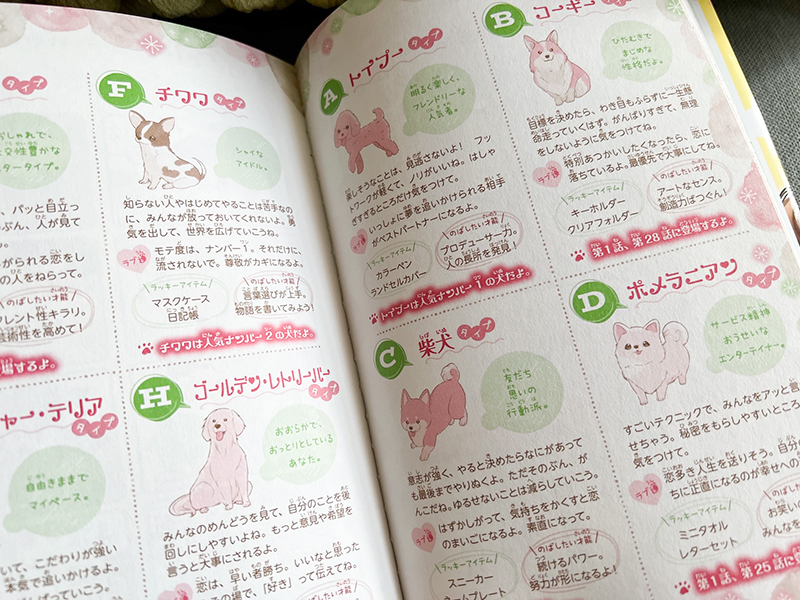 タイプ
おしゃれで、
社交性豊かな
スタータイプ。
パッと目立っ
ぶん、人が見て
がられる恋をし
の人をねらって。
タレント性キラリ。
芸術性を高めて!
場するよ。
F チワワ タイプ
シャイな
アイドル。
知らない人やはじめてやることは苦手なの
に、みんなが放っておいてくれないよ。勇
気を出して、世界を広げていこうね。
ラブ運
モテ度は、ナンバー1。それだけに、
流されないで。尊敬がカギになるよ。
ラッキーアイテム
マスクケース
日記帳
のばしたい才能
言葉選びが上手。
物語を書いてみよう!
チワワは人気ナンバー2の犬だよ。
ャー・テリア
タイプ
自由きままで
マイペース。
いて、こだわりが強い
本気で追いかけるよ。
H ゴールデン・レトリーバー
タイプ
おおらかで、
おっとりとしている
あなた。
みんなのめんどうを見て、自分のことを後
回しにしやすいよね。もっと意見や希望を
言うと大事にされるよ。
恋は、早い者勝ち。いいなと思った
その場で、「好き」って伝えてね。
ラッキーアイテム
のばしたい才能
A トイプー タイプ
明るく楽しく、
フレンドリーな
人気者。
楽しそうなことは、見逃さないよ! フッ
トワークが軽くて、ノリがいいね。はしゃ
ぎすぎるところだけ気をつけて。
ラブ運
いっしょに夢を追いかけられる相手
がベストパートナーになるよ。
ラッキーアイテム
カラーペン
ランドセルカバー
のばしたい才能
プロデューサー力。
人の長所を発見!
トイプーは人気ナンバー1の犬だよ。
B コーギー タイプ
ひたむきで
まじめな
性格だよ。
目標を決めたら、わき目もふらずに一生懸
命走っていくはず。がんばりすぎて、無理
をしないように気をつけてね。
ラブ運
特別あつかいしたくなったら、恋に
落ちているよ。最優先で大事にしてね。
ラッキーアイテム
キーホルダー
クリアフォルダー
のばしたい才能
アートなセンス。
創造力ばつぐん!
第1話、第28話に登場するよ。
C 柴犬 タイプ
友だち
思いの
行動派。
意志が強く、やると決めたらなにがあって
も最後までやりぬくよ。ただそのぶん、が
んこだね。ゆるせないことは減らしていこう。
ラブ運
はずかしがって、気持ちをかくすと恋
のまいごになるよ。素直になって。
ラッキーアイテム
スニーカー
のばしたい才能
続けるパワー。
努力が形になるよ!
D ポメラニアン
サービス精神
おうせいな
エンターテイナー。
すごいテクニックで、みんなをアッと言
せちゃう。秘密をもらしやすいところ
気をつけて。
ラブ運
恋多き人生を送りそう。自分
ちに正直になるのが幸せへの
ラッキーアイテム
ミニタオル
レターセット
のばし
お笑い
みんな
第1話、第25話に